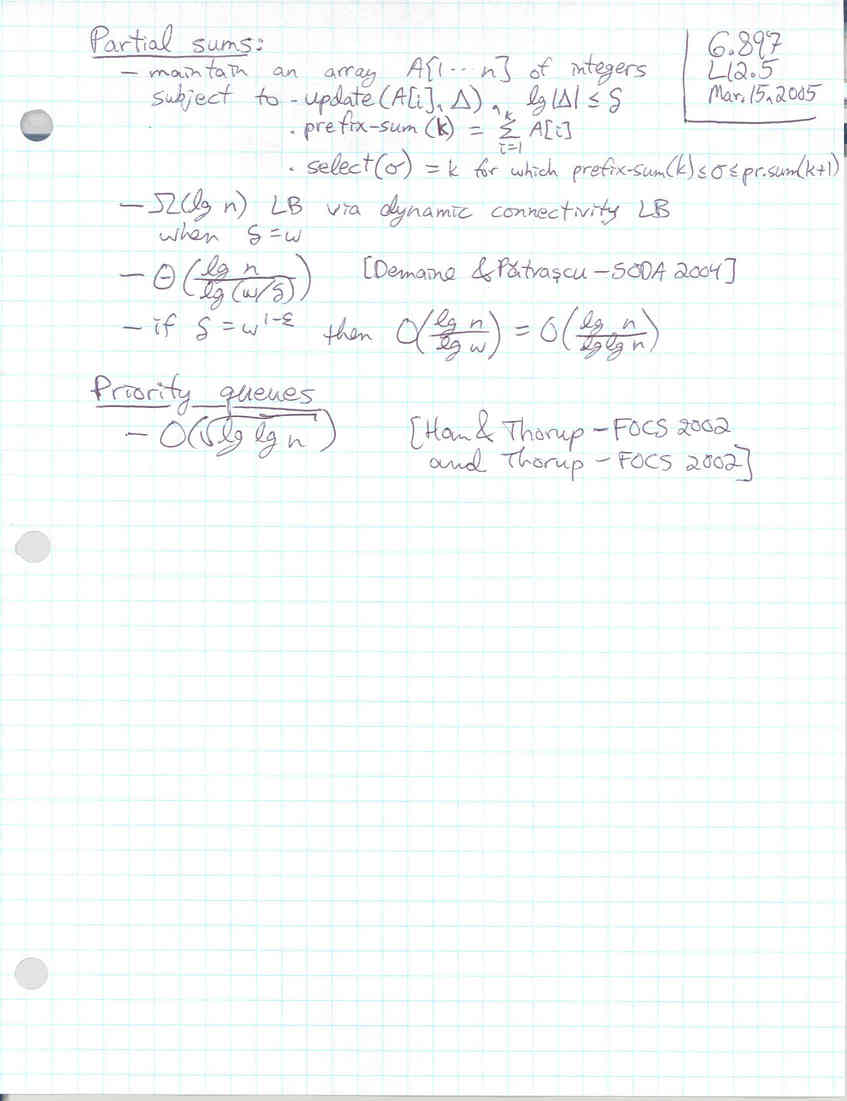 6.897
L12.5
Mar. 15, 2005
Partial sums:
– maintain an array A[1 ··· n] of integers
subject to · update(A[i], Δ), lg |Δ| ≤ δ
· prefix-sum(k) = Σ_{i=1}^{k} A[i]
· select(σ) = k for which prefix-sum(k) ≤ σ ≤ pr.sum(k+1)
– Ω(lg n) LB via dynamic connectivity LB
when δ = w
– Θ(lg n / lg (w/δ)) [Demaine & Pătraşcu – SODA 2004]
– if δ = w^{1-ε} then O(lg n / lg w) = O(lg n / lg lg n)
Priority queues
– O(√lg lg n) [Han & Thorup – FOCS 2002
and Thorup – FOCS 2002]